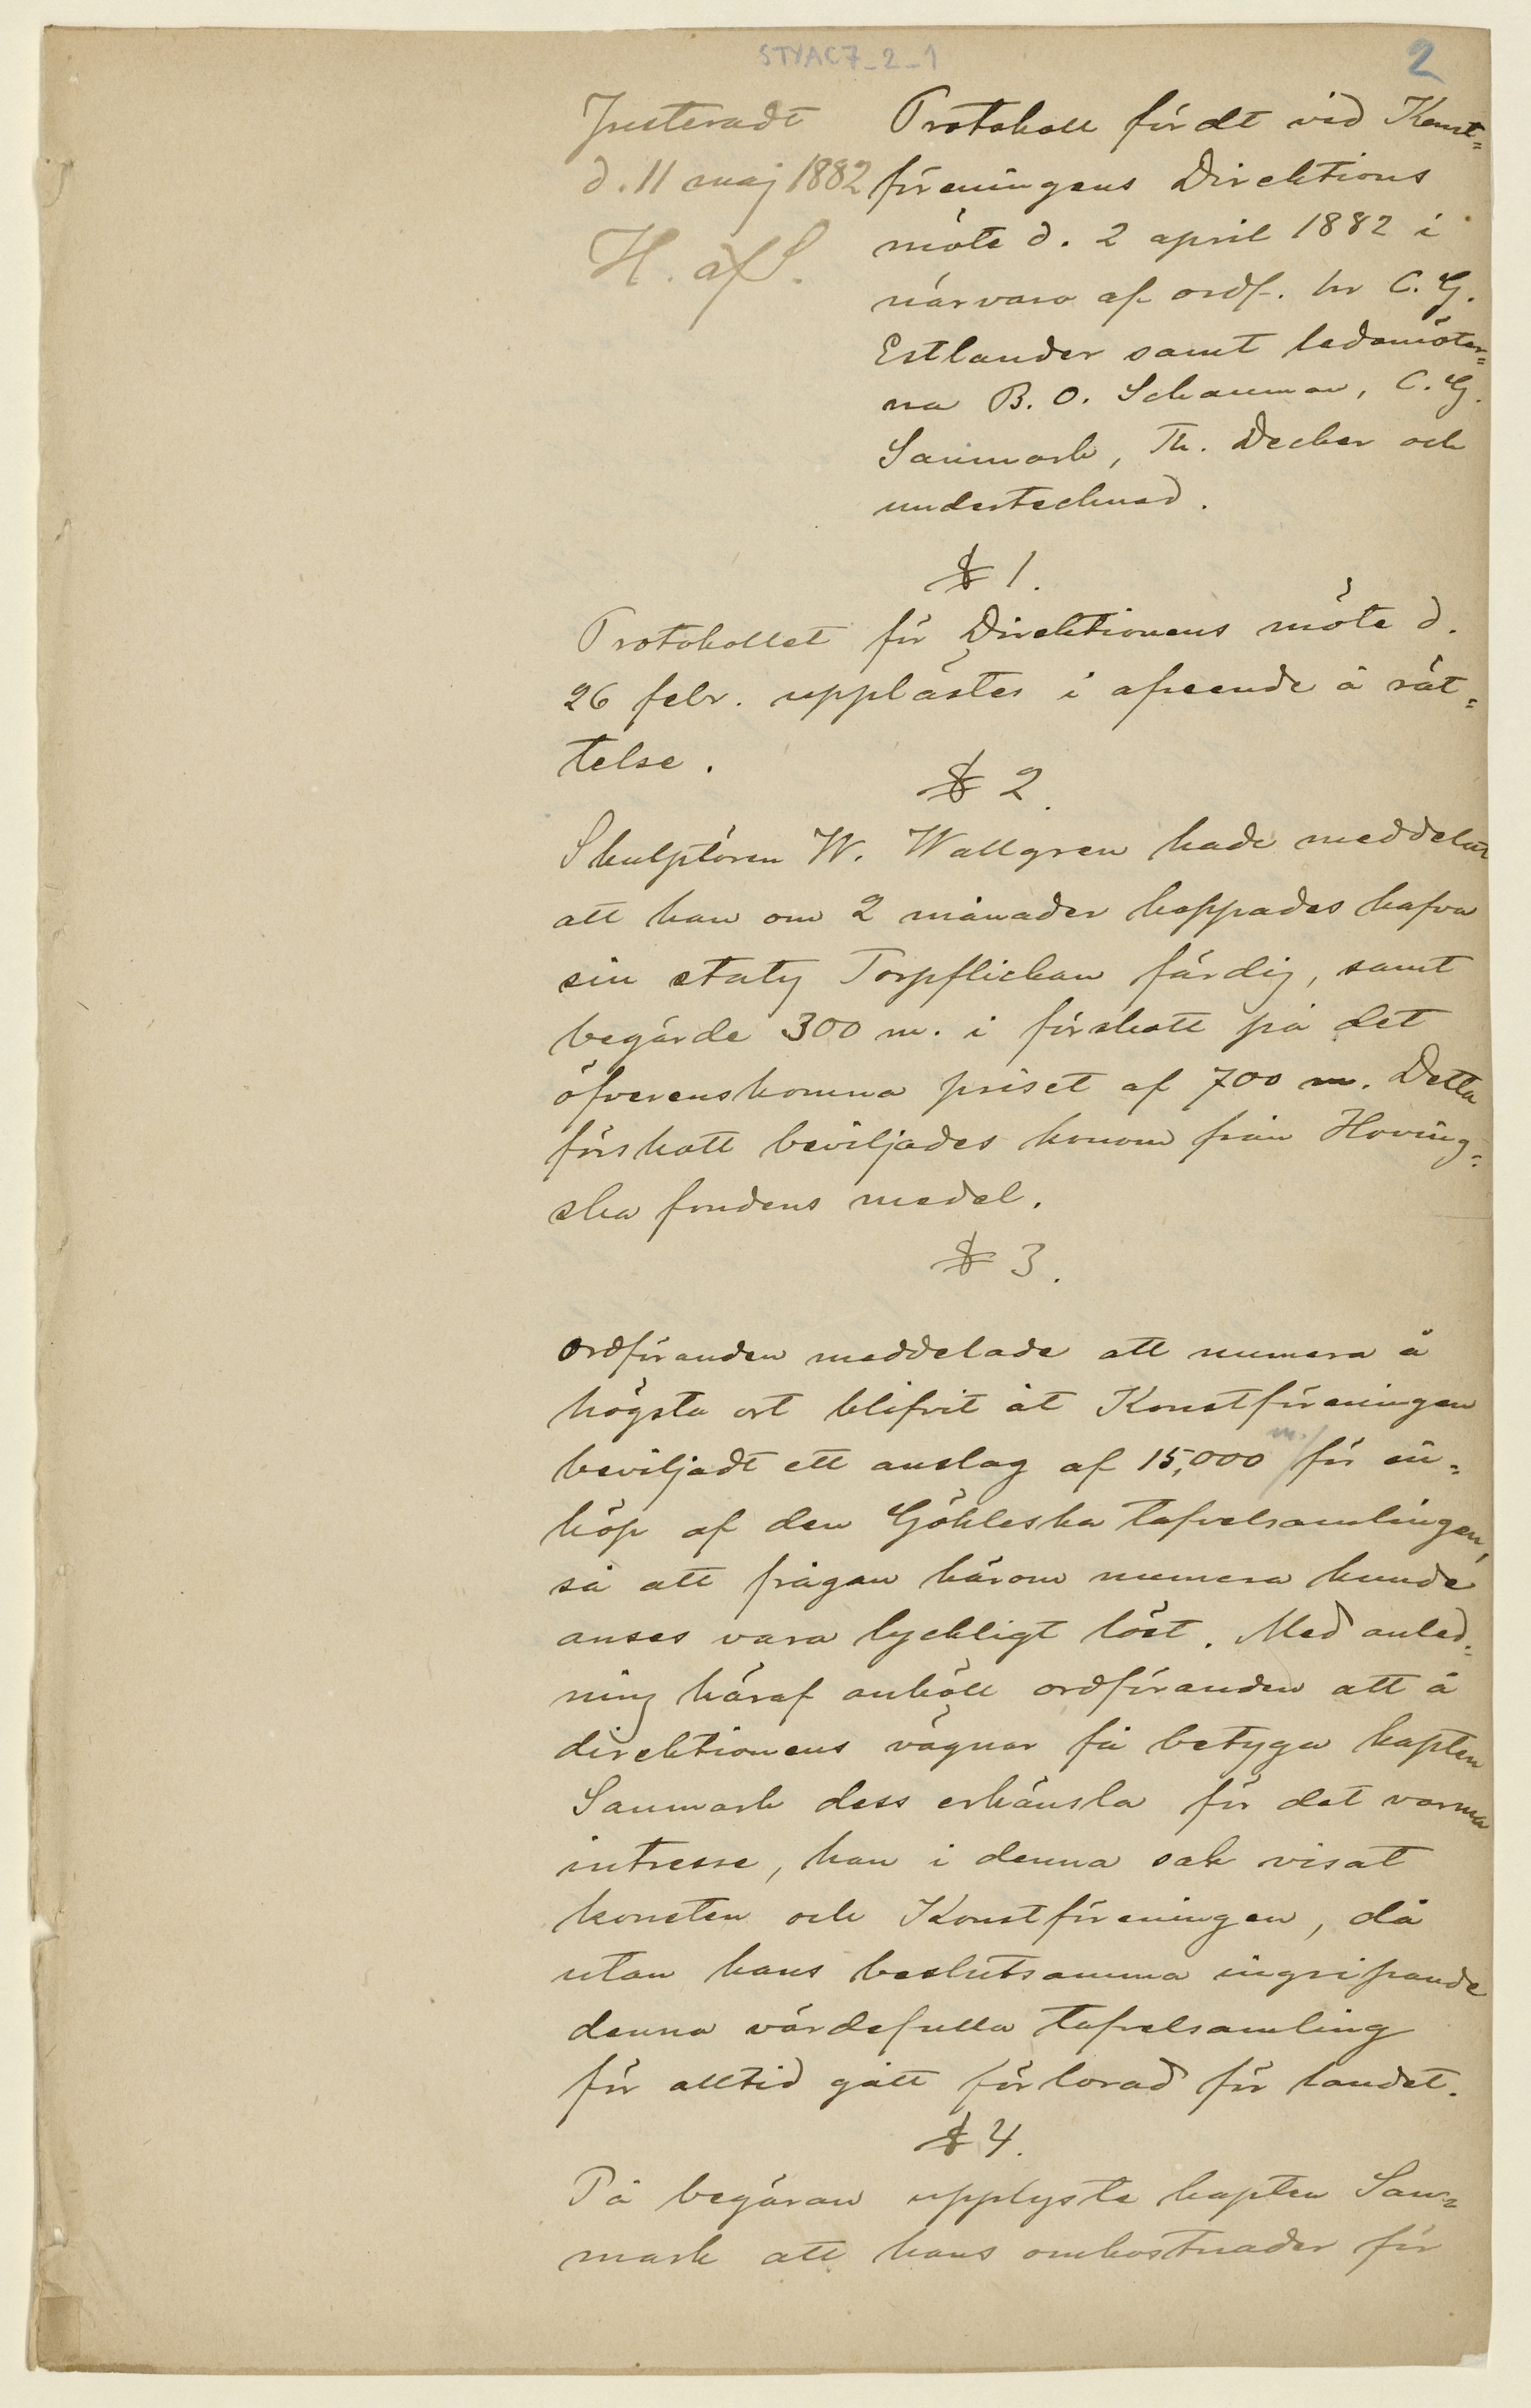 STYAC7_2_1
2
Justeradt
d. 11 maj 1882
H. af S.
Protokoll fördt vid Konst=
föreningens Direktions
möte d. 2 april 1882 i
närvaro af ordf. hr C. G.
Estlander samt ledamöter=
na B. O. Schauman, C. G.
Sanmark, Th. Decker och
undertecknad.
§ 1.
Protokollet för Direktionens möte d.
26 febr. upplästes i afseende å rät=
telse.
§ 2.
Skulptören W. Wallgren hade meddelat
att han om 2 månader hoppades hafva
sin staty Torpflickan färdig, samt
begärde 300 m. i förskott på det
öfverenskomna priset af 700 m. Detta
förskott beviljades honom från Hoving=
ska fondens medel.
§ 3.
Ordföranden meddelade att numera å
högsta ort blifvit åt Konstföreningen
beviljadt ett anslag af 15,000 m. för in=
köp af den Göhleska tafvelsamlingen,
så att frågan härom numera kunde
anses vara lyckligt löst. Med anled=
ning häraf anhöll ordföranden att å
direktionens vägnar få betyga kapten
Sanmark dess erkänsla för det varma
intresse, han i denna sak visat
konsten och Konstföreningen, då
utan hans beslutsamma ingripande
denna värdefulla tafvelsamling
för alltid gått förlorad för landet.
§ 4.
På begäran upplyste kapten San=
mark att hans omkostnader för